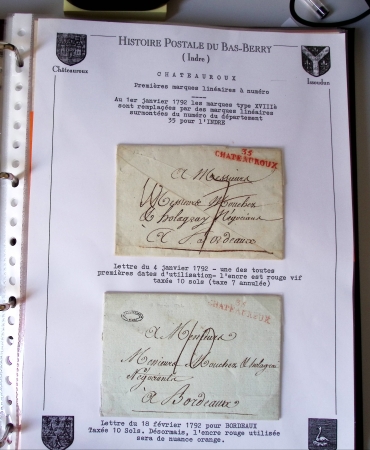 HISTOIRE POSTALE DU BAS-BERRY
( Indre )
Châteauroux
Issoudun
CHATEAUROUX
Premières marques linéaires à numéro
Au 1er janvier 1792 les marques type XVIIIè
sont remplaçées par des marques linéaires
surmontées du numéro du département
35 pour l'INDRE
35
CHATEAUROUX
A Messieurs
Messieurs
Négocians
A Bordeaux
Lettre du 4 janvier 1792 - une des toutes
premières dates d'utilisation- l'encre est rouge vif
taxée 10 sols (taxe 7 annulée)
35
CHATEAUROUX
A Messieurs
Messieurs
Négocians
à Bordeaux
Lettre du 18 février 1792 pour BORDEAUX
Taxée 10 Sols. Désormais, l'encre rouge utilisée
sera de nuance orange.